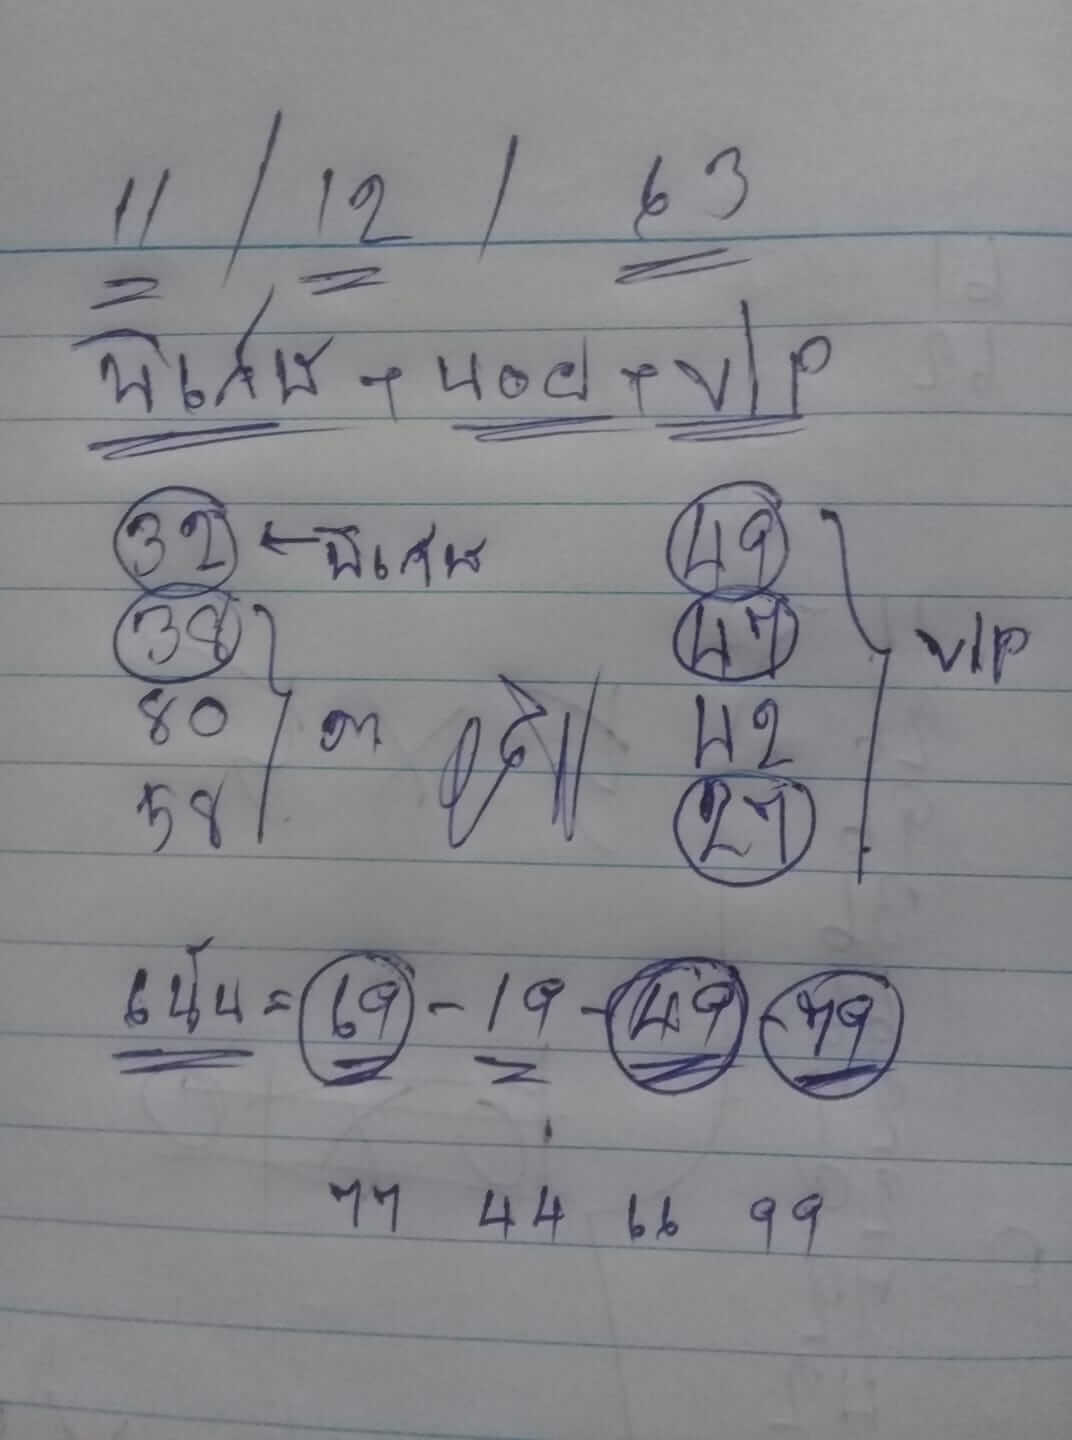 11 / 12 / 63
พิเศษ + นอย + VIP
32 ← พิเศษ 49
38 47 VIP
80 42
58 27
เน้น = 69 - 19 - 49 - 79
77 44 66 99